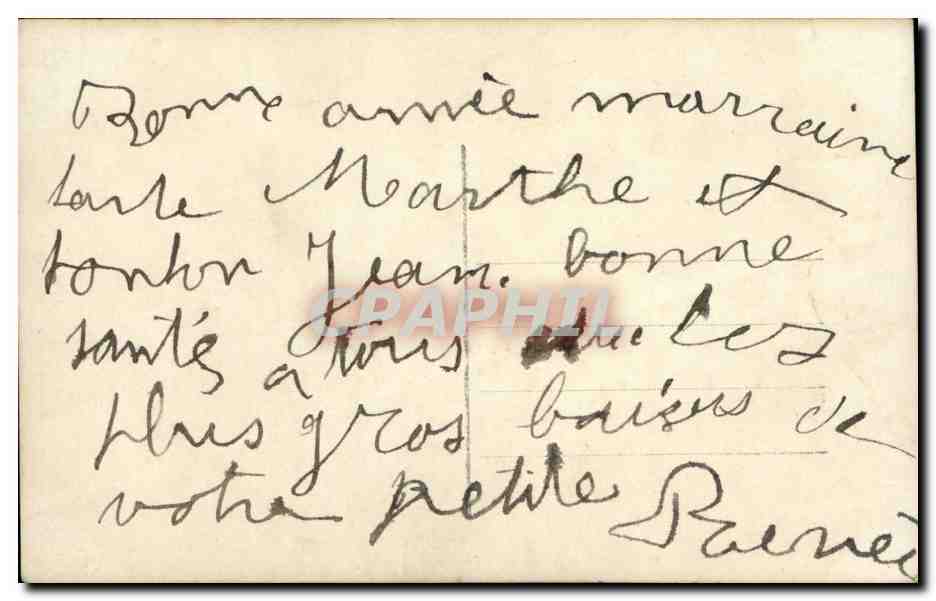 Bonne année marraine
tante Marthe et
tonton Jean. bonne
santé à tous avec les
plus gros baisers de
votre petite Renée
CPAPHIL